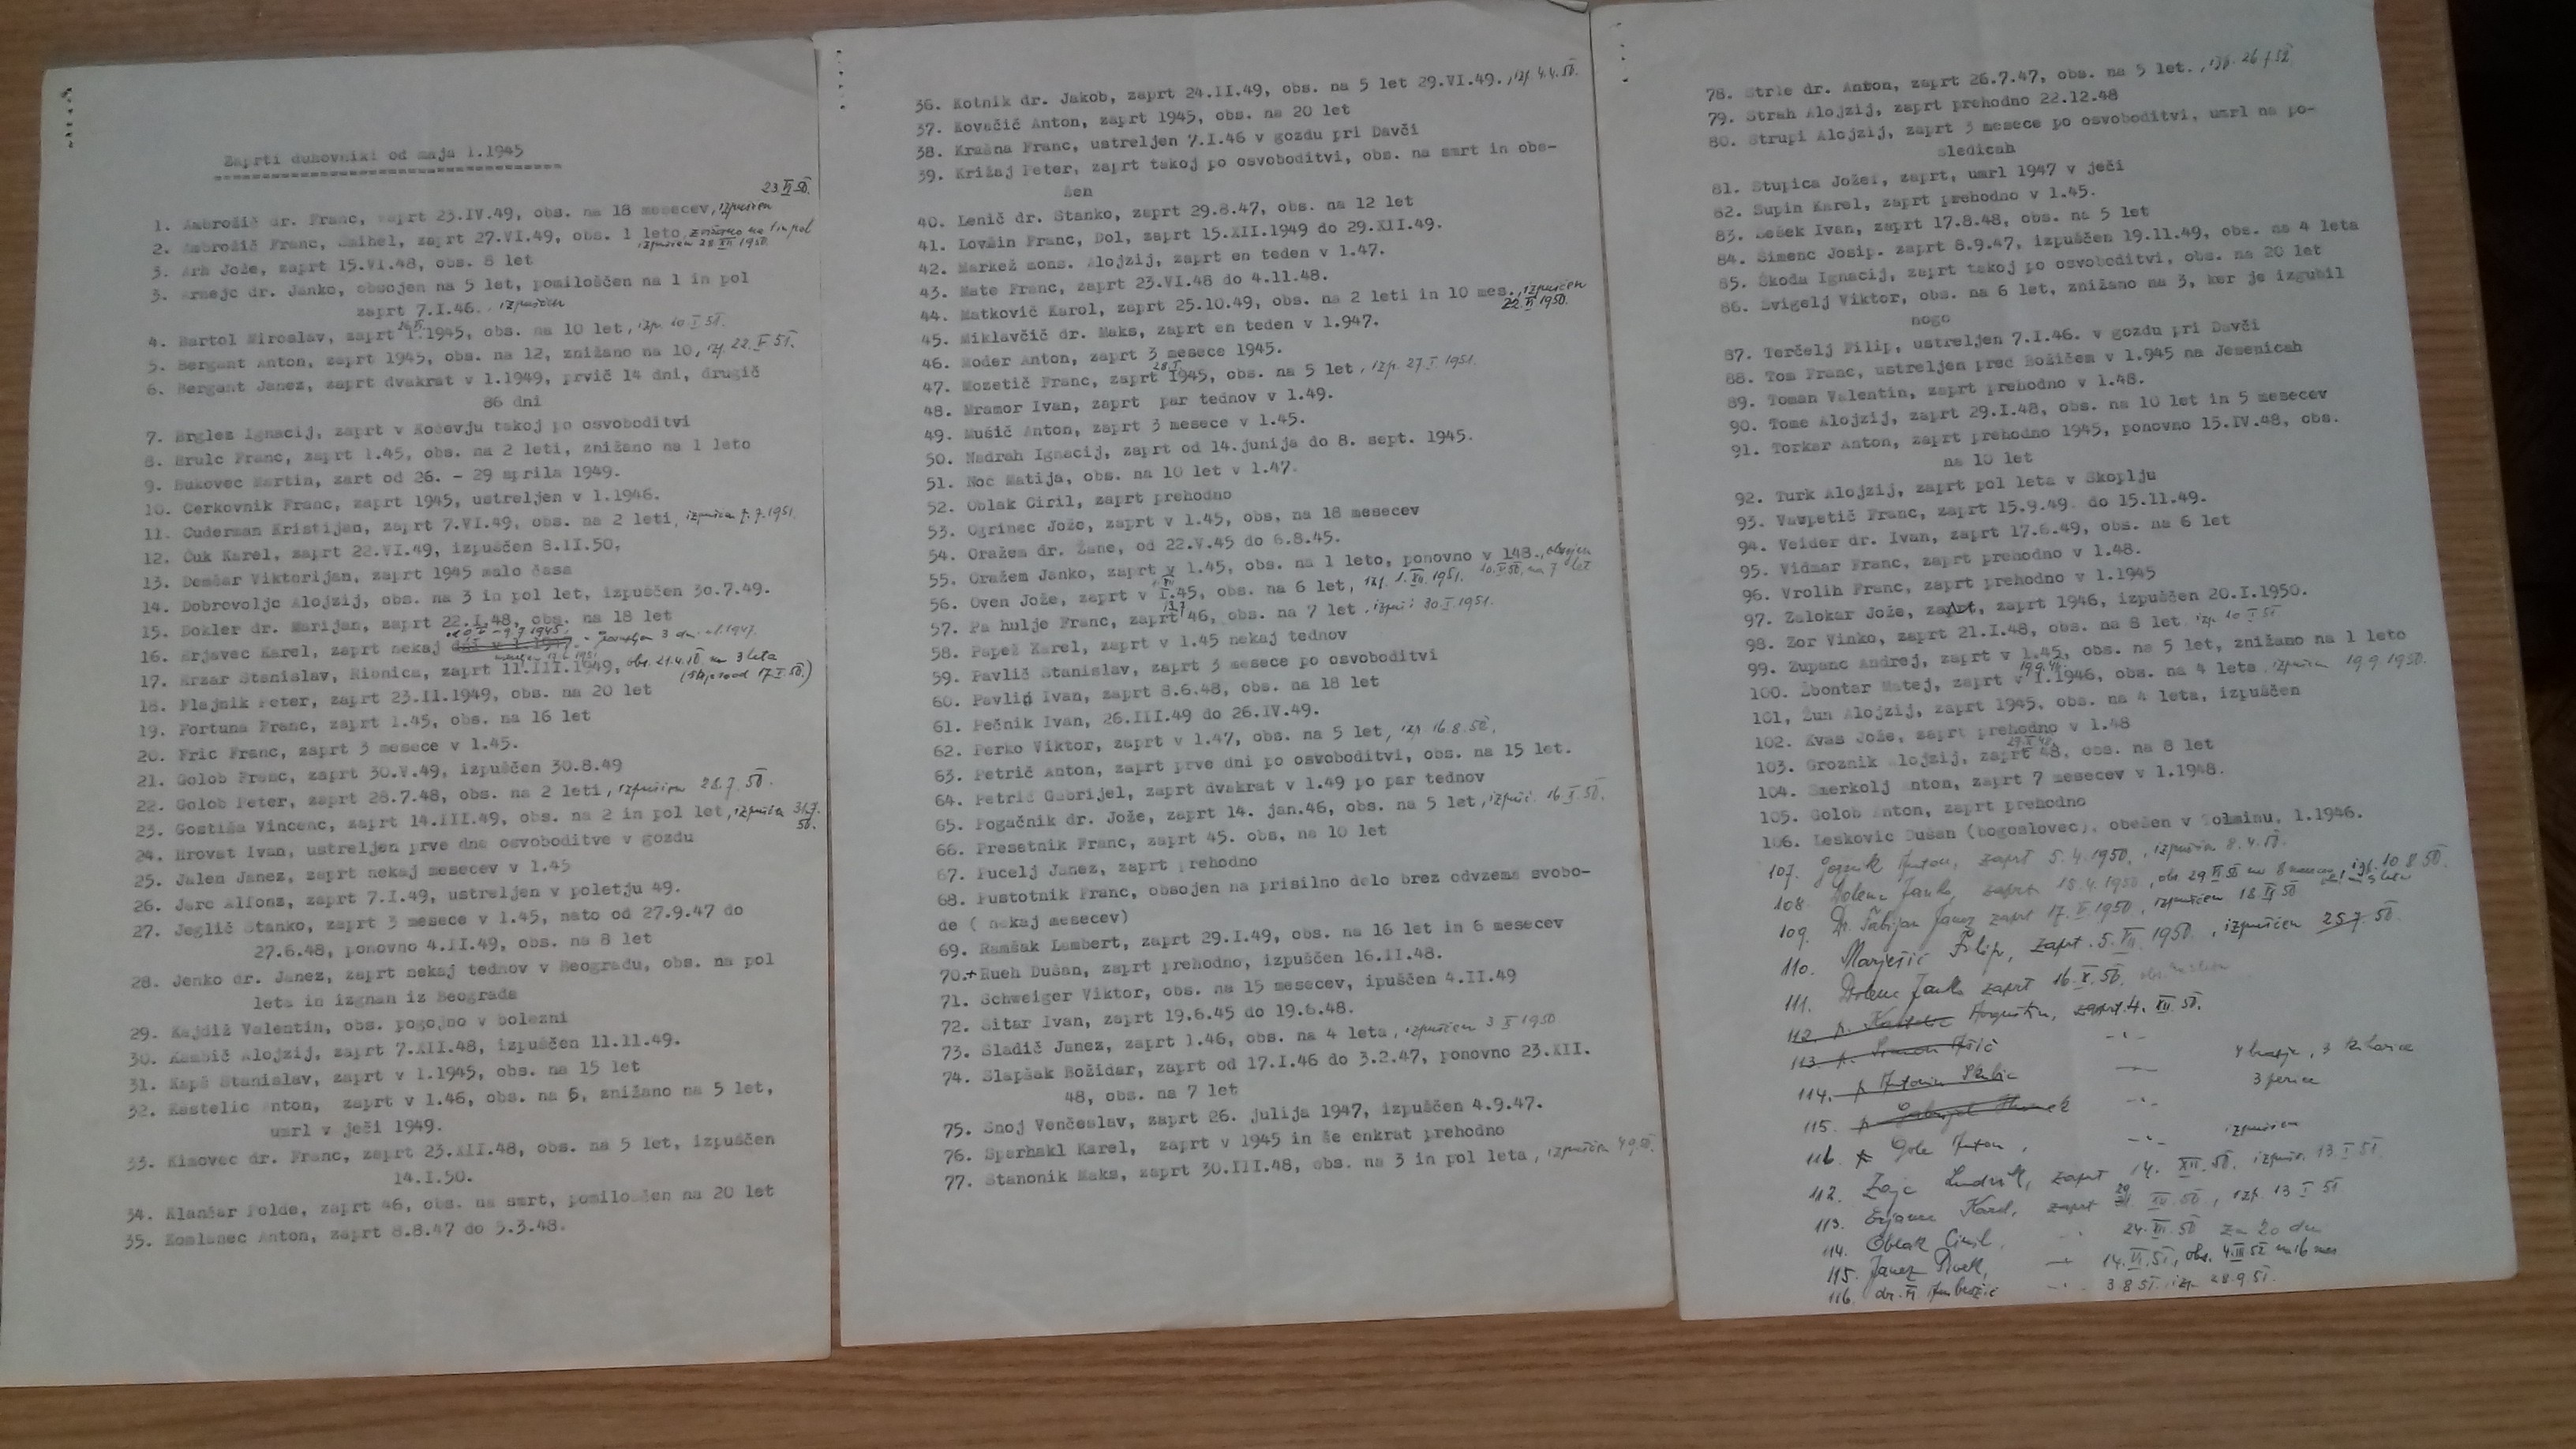 Zaprti duhovniki od maja l.1945
23.VI.50.
1. Ambrožič dr. Franc, zaprt 23.IV.49, obs. na 18 mesecev, izpuščen
2. Ambrožič Franc, Šmihel, zaprt 27.VI.49, obs. 1 leto, znižano na 1 in pol
izpuščen 28 XII 1950.
3. Arh Jože, zaprt 15.VI.48, obs. 8 let
3. Arnejc dr. Janko, obsojen na 5 let, pomiloščen na 1 in pol
zaprt 7.I.46., izpuščen
4. Bartol Miroslav, zaprt l.1945, obs. na 10 let, izp. 10 I 51.
5. Bergant Anton, zaprt 1945, obs. na 12, znižano na 10, izp. 22. I 51.
6. Bergant Janez, zaprt dvakrat v l.1949, prvič 14 dni, drugič
86 dni
7. Brglez Ignacij, zaprt v Kočevju takoj po osvoboditvi
8. Brulc Franc, zaprt l.45, obs. na 2 leti, znižano na 1 leto
9. Bukovec Martin, zart od 26. - 29 aprila 1949.
10. Cerkovnik Franc, zaprt 1945, ustreljen v l.1946.
11. Cuderman Kristijan, zaprt 7.VI.49, obs. na 2 leti, izpuščen 7.7.1951.
12. Čuk Karel, zaprt 22.VI.49, izpuščen 8.II.50,
13. Demšar Viktorijan, zaprt 1945 malo časa
14. Dobrovoljc Alojzij, obs. na 3 in pol let, izpuščen 30.7.49.
15. Dokler dr. Marijan, zaprt 22.I.48, obs. na 18 let
16. Erjavec Karel, zaprt nekaj dni v l.1947. - ponovljen 3 dni l.1947.
17. Erzar Stanislav, Ribnica, zaprt 11.III.1949, obs. 21.4.50 na 3 leta
18. Flajnik Peter, zaprt 23.II.1949, obs. na 20 let
19. Fortuna Franc, zaprt l.45, obs. na 16 let
20. Fric Franc, zaprt 3 mesece v l.45.
21. Golob Franc, zaprt 30.V.49, izpuščen 30.8.49
22. Golob Peter, zaprt 28.7.48, obs. na 2 leti, izpuščen 28.7.50.
23. Gostiša Vincenc, zaprt 14.III.49, obs. na 2 in pol let, izpuščen 31.7.
50.
24. Hrovat Ivan, ustreljen prve dne osvoboditve v gozdu
25. Jalen Janez, zaprt nekaj mesecev v l.45
26. Jarc Alfonz, zaprt 7.I.49, ustreljen v poletju 49.
27. Jeglič Stanko, zaprt 3 mesece v l.45, nato od 27.9.47 do
27.6.48, ponovno 4.II.49, obs. na 8 let
28. Jenko dr. Janez, zaprt nekaj tednov v Beogradu, obs. na pol
leta in izgnan iz Beograda
29. Kajdiž Valentin, obs. pogojno v bolezni
30. Kambič Alojzij, zaprt 7.XII.48, izpuščen 11.11.49.
31. Kapš Stanislav, zaprt v l.1945, obs. na 15 let
32. Kastelic Anton, zaprt v l.46, obs. na 6, znižano na 5 let,
umrl v ječi 1949.
33. Kimovec dr. Franc, zaprt 23.XII.48, obs. na 5 let, izpuščen
14.I.50.
34. Klanšar Polde, zaprt 46, obs. na smrt, pomiloščen na 20 let
35. Komlanec Anton, zaprt 8.8.47 do 5.3.48.
36. Kotnik dr. Jakob, zaprt 24.II.49, obs. na 5 let 29.VI.49., izp. 4.4.50.
37. Kovačič Anton, zaprt 1945, obs. na 20 let
38. Krašna Franc, ustreljen 7.I.46 v gozdu pri Davči
39. Križaj Peter, zaprt takoj po osvoboditvi, obs. na smrt in obe-
šen
40. Lenič dr. Stanko, zaprt 29.8.47, obs. na 12 let
41. Lovšin Franc, Dol, zaprt 15.XII.1949 do 29.XII.49.
42. Markež mons. Alojzij, zaprt en teden v l.47.
43. Mate Franc, zaprt 23.VI.48 do 4.11.48.
44. Matkovič Karol, zaprt 25.10.49, obs. na 2 leti in 10 mes., izpuščen
22.II 1950.
45. Miklavčič dr. Maks, zaprt en teden v l.947.
46. Moder Anton, zaprt 3 mesece 1945.
47. Mozetič Franc, zaprt 1945, obs. na 5 let, izp. 27 I 1951.
48. Mramor Ivan, zaprt par tednov v l.49.
49. Mušič Anton, zaprt 3 mesece v l.45.
50. Nadrah Ignacij, zaprt od 14.junija do 8. sept. 1945.
51. Noč Matija, obs. na 10 let v l.47.
52. Oblak Ciril, zaprt prehodno
53. Ogrinec Jože, zaprt v l.45, obs, na 18 mesecev
54. Oražem dr. Žane, od 22.V.45 do 6.8.45.
55. Oražem Janko, zaprt v l.45, obs. na 1 leto, ponovno v 148., obsojen
10.II 50. na 7 let
56. Oven Jože, zaprt v l.45, obs. na 6 let, izp. 1. XII. 1951.
57. Pa hulje Franc, zaprt 13.7 46, obs. na 7 let, izpuš. 30.I.1951.
58. Papež Karel, zaprt v l.45 nekaj tednov
59. Pavlič Stanislav, zaprt 3 mesece po osvoboditvi
60. Pavlin Ivan, zaprt 8.6.48, obs. na 18 let
61. Pečnik Ivan, 26.III.49 do 26.IV.49.
62. Perko Viktor, zaprt v l.47, obs. na 5 let, izp. 16.8.50.
63. Petrič Anton, zaprt prve dni po osvoboditvi, obs. na 15 let.
64. Petrič Gabrijel, zaprt dvakrat v l.49 po par tednov
65. Pogačnik dr. Jože, zaprt 14. jan.46, obs. na 5 let, izpušč. 16.X.50.
66. Presetnik Franc, zaprt 45. obs, na 10 let
67. Pucelj Janez, zaprt prehodno
68. Pustotnik Franc, obsojen na prisilno delo brez odvzema svobo-
de ( nekaj mesecev)
69. Ramšak Lambert, zaprt 29.I.49, obs. na 16 let in 6 mesecev
70.+ Rueh Dušan, zaprt prehodno, izpuščen 16.II.48.
71. Schweiger Viktor, obs. na 15 mesecev, ipuščen 4.II.49
72. Sitar Ivan, zaprt 19.6.45 do 19.6.48.
73. Sladič Janez, zaprt l.46, obs. na 4 leta, izpuščen 3 X 1950
74. Slapšak Božidar, zaprt od 17.I.46 do 3.2.47, ponovno 23.XII.
48, obs. na 7 let
75. Snoj Venčeslav, zaprt 26. julija 1947, izpuščen 4.9.47.
76. Sparhakl Karel, zaprt v 1945 in še enkrat prehodno
77. Stanonik Maks, zaprt 30.III.48, obs. na 3 in pol leta, izpuščen 4.9.50.
78. Strle dr. Anton, zaprt 26.7.47, obs. na 5 let., izp. 26 7 52
79. Strah Alojzij, zaprt prehodno 22.12.48
80. Strupi Alojzij, zaprt 3 mesece po osvoboditvi, umrl na po-
sledicah
81. Stupica Jožef, zaprt, umrl 1947 v ječi
82. Supin Karel, zaprt prehodno v l.45.
83. Šešek Ivan, zaprt 17.8.48, obs. na 5 let
84. Šimenc Josip. zaprt 8.9.47, izpuščen 19.11.49, obs. na 4 leta
85. Škoda Ignacij, zaprt takoj po osvoboditvi, obs. na 20 let
86. Švigelj Viktor, obs. na 6 let, znižano na 3, ker je izgubil
nogo
87. Terčelj Filip, ustreljen 7.I.46. v gozdu pri Davči
88. Tom Franc, ustreljen pred Božičem v l.945 na Jesenicah
89. Toman Valentin, zaprt prehodno v l.48.
90. Tome Alojzij, zaprt 29.I.48, obs. na 10 let in 5 mesecev
91. Torkar Anton, zaprt prehodno 1945, ponovno 15.IV.48, obs.
na 10 let
92. Turk Alojzij, zaprt pol leta v Skoplju
93. Vavpetič Franc, zaprt 15.9.49. do 15.11.49.
94. Veider dr. Ivan, zaprt 17.6.49, obs. na 6 let
95. Vidmar Franc, zaprt prehodno v l.48.
96. Vrolih Franc, zaprt prehodno v l.1945
97. Zalokar Jože, zaprt, zaprt 1946, izpuščen 20.I.1950.
98. Zor Vinko, zaprt 21.I.48, obs. na 8 let izp. 10 I 51
99. Zupanc Andrej, zaprt v l.45, obs. na 5 let, znižano na 1 leto
100. Žbontar Matej, zaprt v l.1946, obs. na 4 leta, izpuščen 19.9.1950.
101, Žun Alojzij, zaprt 1945, obs. na 4 leta, izpuščen
102. Kvas Jože, zaprt prehodno v l.48
103. Groznik Alojzij, zaprt 48, obs. na 8 let
104. Smerkolj Anton, zaprt 7 mesecev v l.1948.
105. Golob Anton, zaprt prehodno
106. Leskovic Dušan (bogoslovec), obešen v Tolminu, l.1946.
107. Anton, zaprt 5.4.1950., izpuščen 8.4.50.
108. Dolenc Janko, zaprt 15.4.1950, obs. 29 VI 50 na 8 mesecev, izp. 10 8 50.
109. Dr. Janez zaprt 17.V.1950, izpuščen 18 VI 50
110. Filip, zaprt 5. VII 1950, izpuščen 25.7.50.
111. Dolenc Janko zaprt 16.X.50.
112. p. Kastelic Avguštin, zaprt 4. XII. 50.
113. p.
114. p. Antonin
115. p.
3 perice
116. Gole Anton, izpuščen
112. Zajc Ludvik, zaprt 14. XII. 50. izpušč. 13. I 51.
113. Erjavec Karel, zaprt XII 50, izp. 13 I 51
114. Oblak Ciril, 24.XII.50 za 20 dni
115. Janez 14.VI.51, obs. 4.III 52 na 16 mes
116. dr. Fr. Ambrožič 3.8.51. izp. 28.9.51.